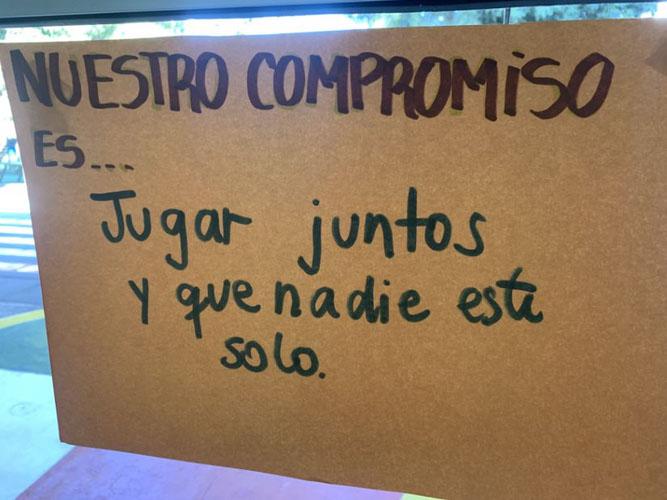 NUESTRO COMPROMISO
ES...
Jugar juntos
y que nadie esté
solo.